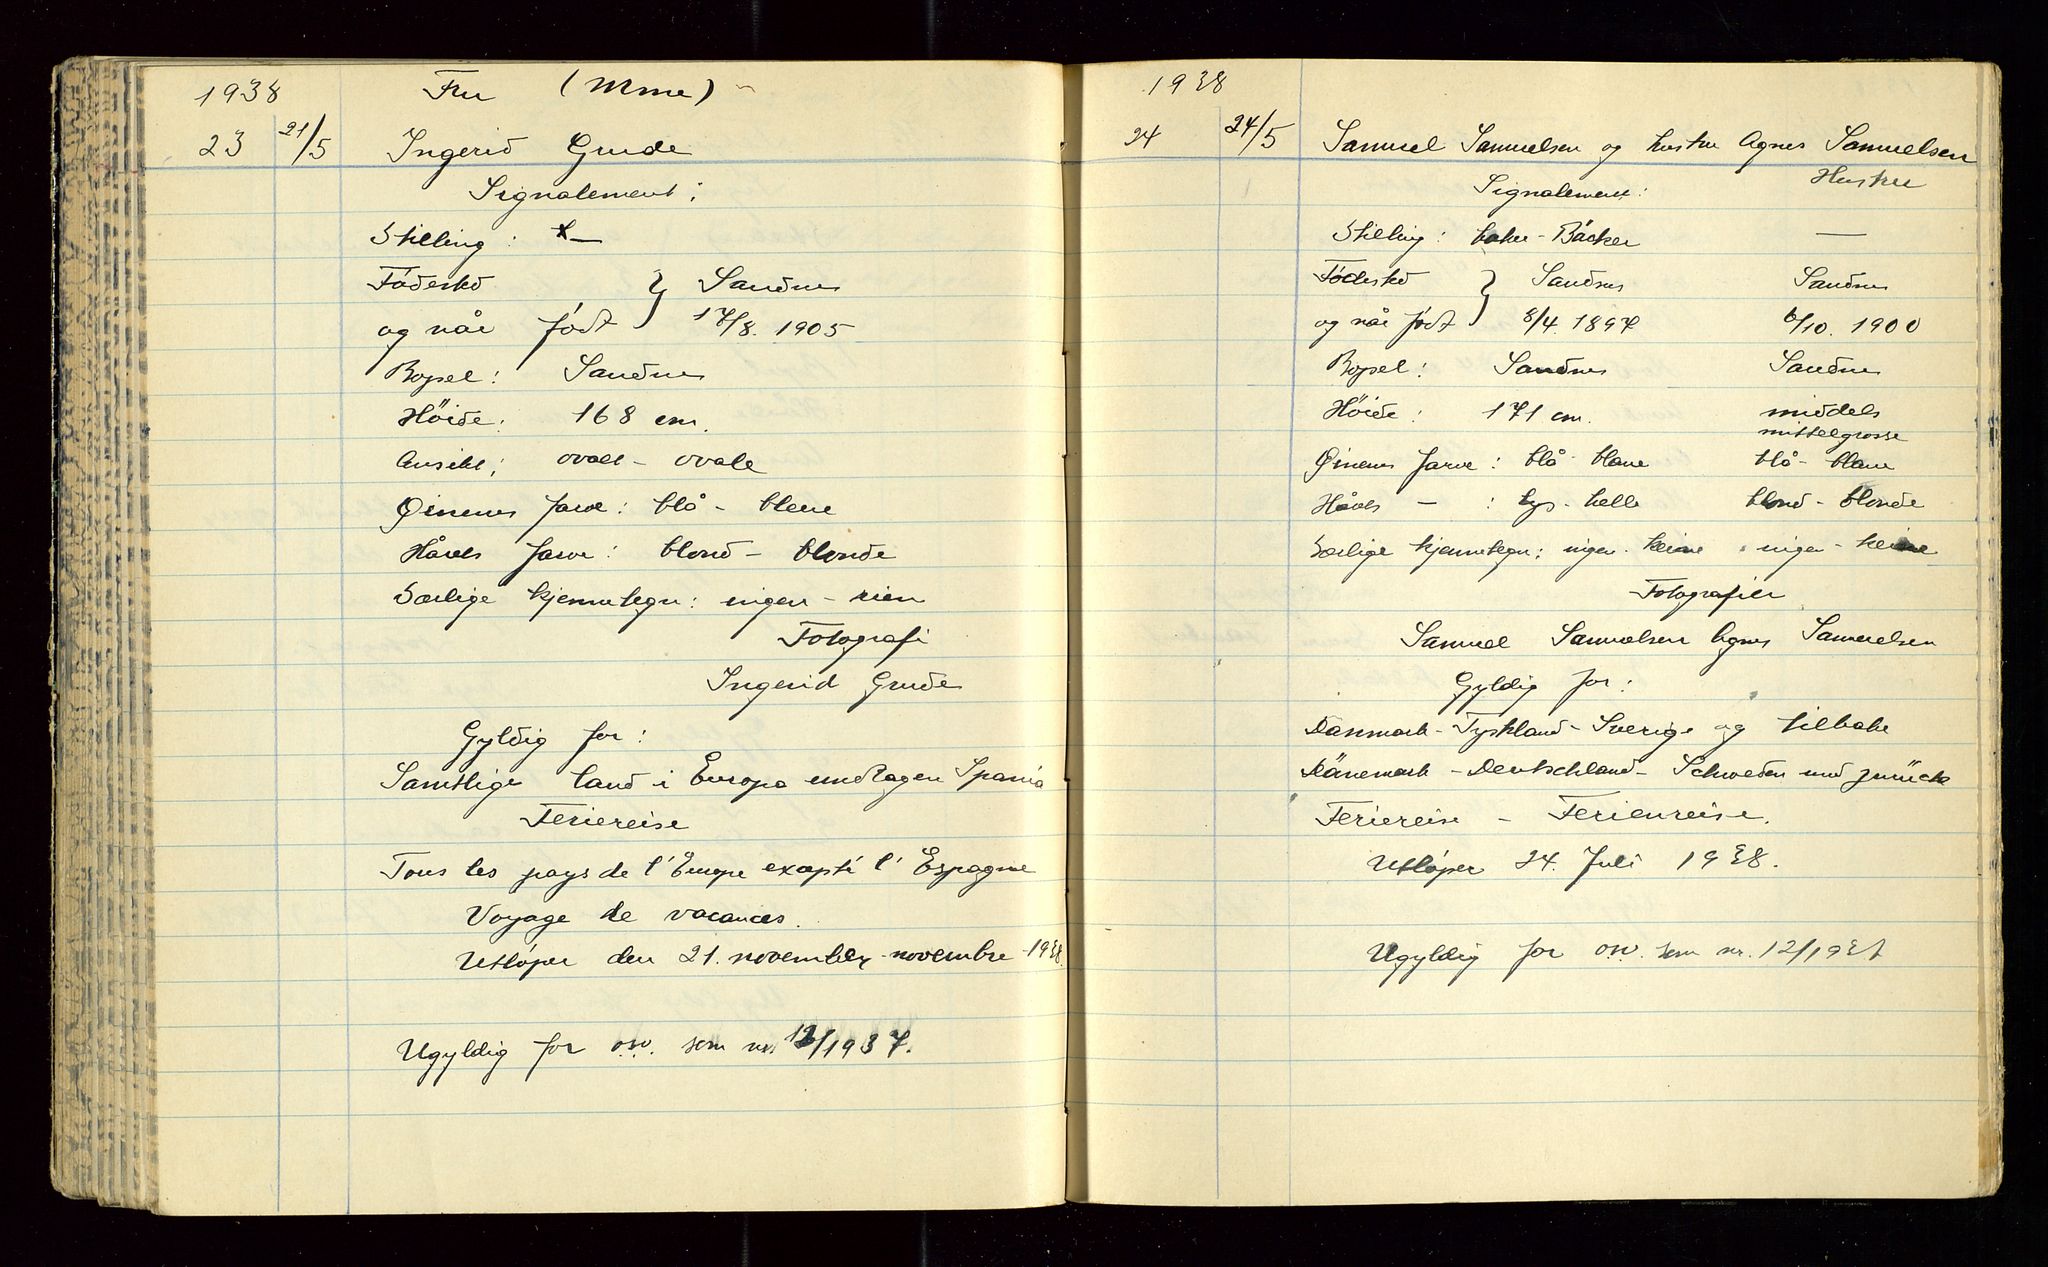 1938 Fru (Mme)
23 21/5 Ingerid Grude
Signalement:
Stilling: —
Fødested } Sandnes
og når født } 17/8. 1905
Bopel: Sandnes
Höide: 168 cm.
Ansikt: ovalt - ovale
Øinenes farve: blå - bleue
Hårets farve: blond - blonde
Særlige kjennetegn: ingen - rien
Fotografi
Ingerid Grude
Gyldig for:
Samtlige land i Europa undtagen Spania
Feriereise
Tous les pays de l'Europe excepté l'Espagne
Voyage de vacances.
Utløper den 21. november - novembre 1938.
Ugyldig for osv. som nr. 12/1937.
1938
24 24/5 Samuel Samuelsen og hustru Agnes Samuelsen
Signalement: Hustru
Stilling: baker - Bäcker —
Fødested } Sandnes Sandnes
og når født } 8/4. 1897 6/10. 1900
Bopel: Sandnes Sandnes
Höide: 171 cm. middels
mittelgrosse
Øinenes farve: blå - blaue blå - blaue
Hårets — : lys - helle blond - blonde
Særlige kjennetegn: ingen - keine ingen - keine
Fotografier
Samuel Samuelsen Agnes Samuelsen
Gyldig for:
Danmark - Tyskland - Sverige og tilbake
Dänemark - Deutschland - Schweden und zurück
Feriereise - Ferienreise.
Utløper 24. Juli 1938.
Ugyldig for osv. som nr. 12/1937